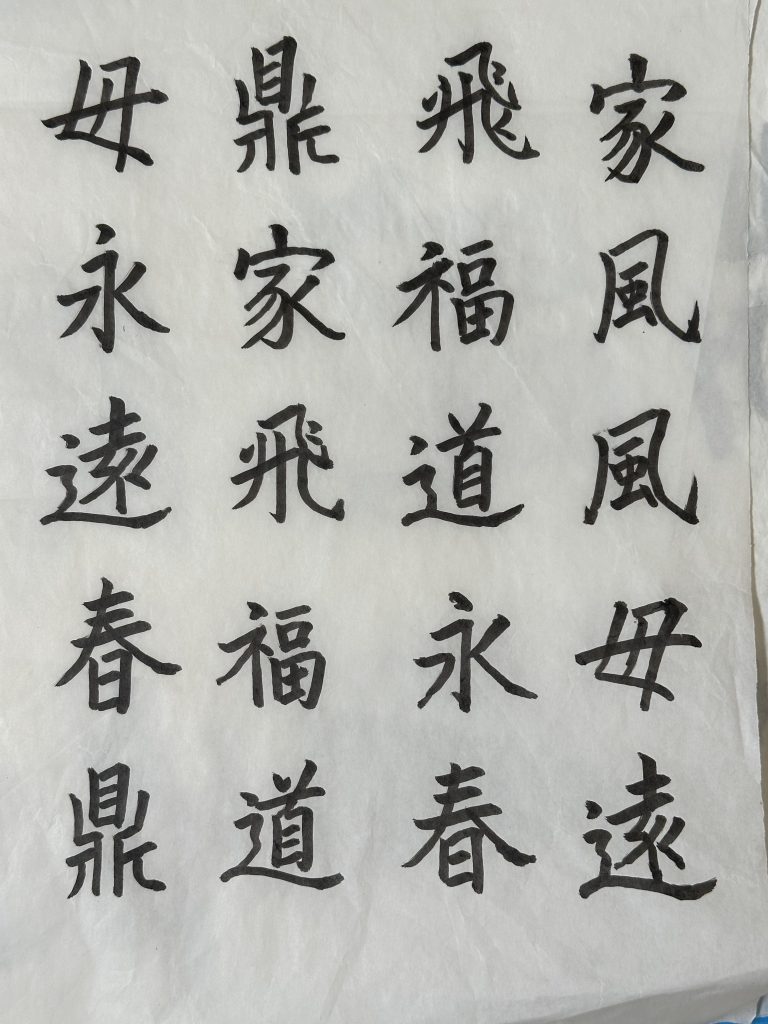 家風風毋遠
飛福道永春
鼎家飛福道
毋永遠春鼎